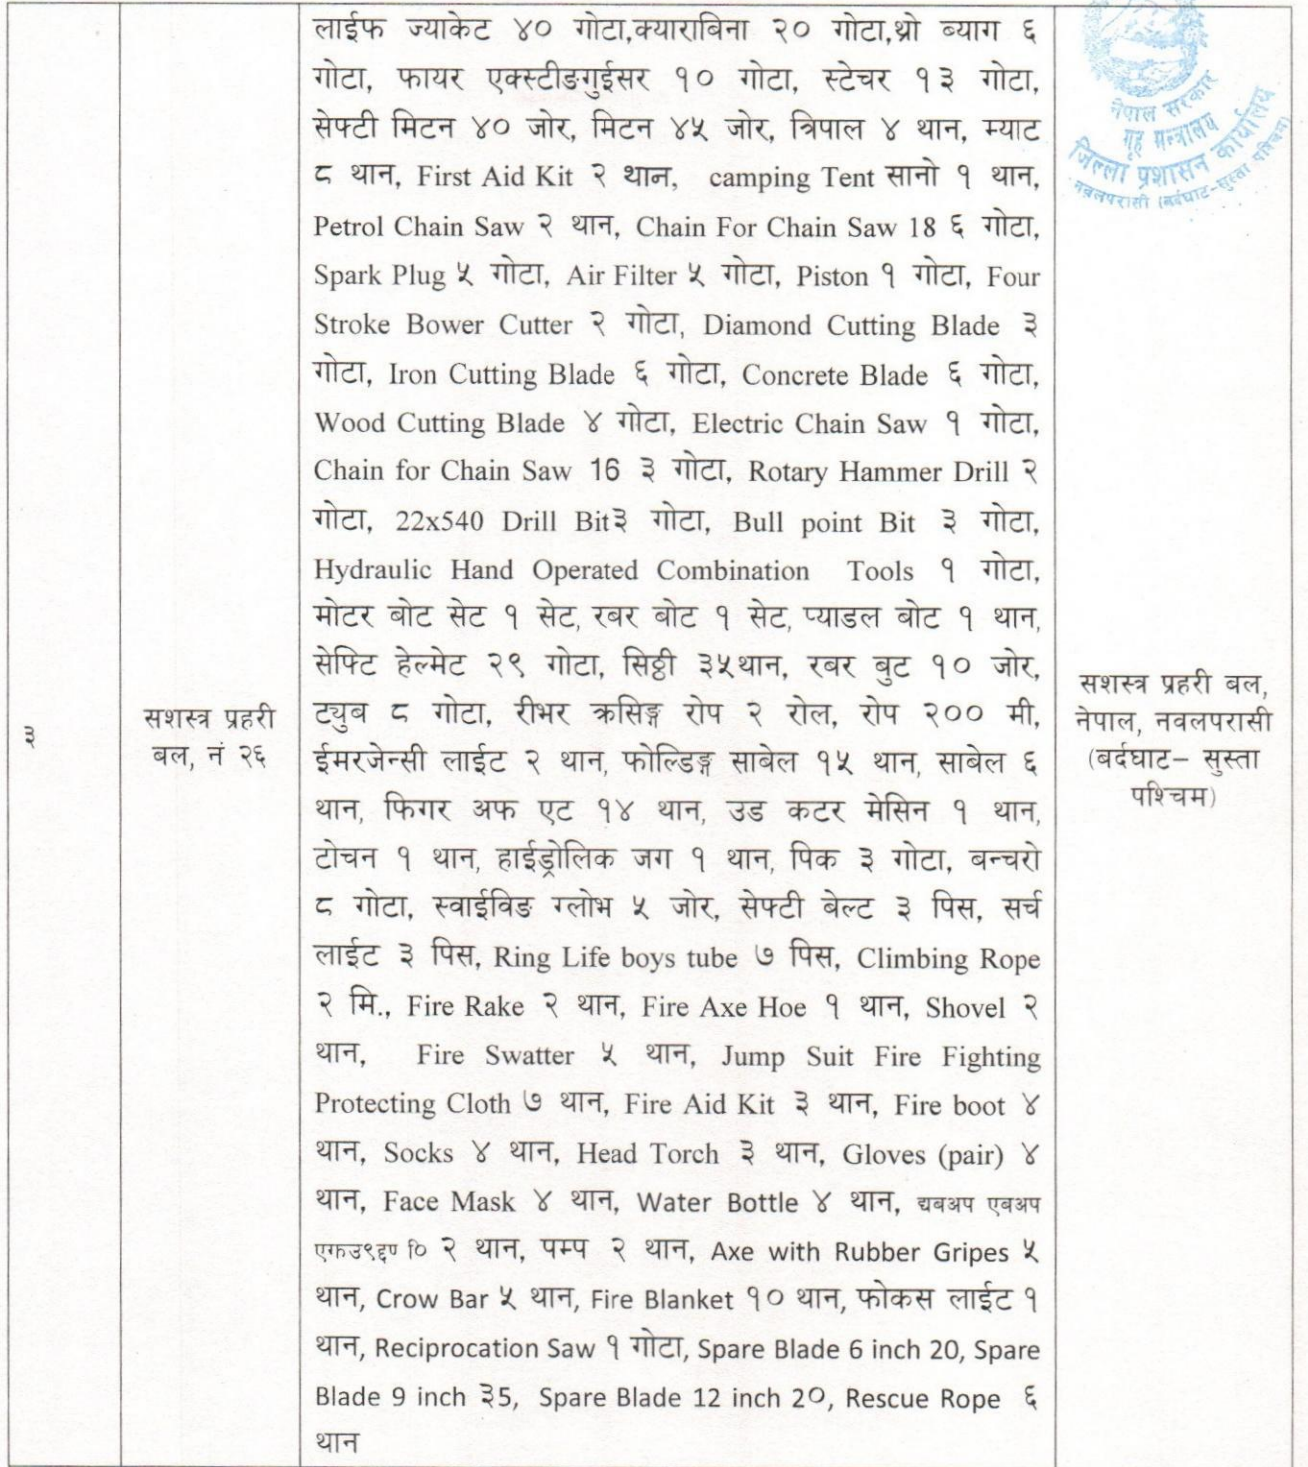 लाईफ ज्याकेट ४० गोटा,क्याराबिना २० गोटा,थ्रो ब्याग ६
गोटा, फायर एक्स्टीङगुईसर १० गोटा, स्टेचर १३ गोटा,
सेफ्टी मिटन ४० जोर, मिटन ४५ जोर, त्रिपाल ४ थान, म्याट
८ थान, First Aid Kit २ थान, camping Tent सानो १ थान,
Petrol Chain Saw २ थान, Chain For Chain Saw 18 ६ गोटा,
Spark Plug ५ गोटा, Air Filter ५ गोटा, Piston १ गोटा, Four
Stroke Bower Cutter २ गोटा, Diamond Cutting Blade ३
गोटा, Iron Cutting Blade ६ गोटा, Concrete Blade ६ गोटा,
Wood Cutting Blade ४ गोटा, Electric Chain Saw १ गोटा,
Chain for Chain Saw 16 ३ गोटा, Rotary Hammer Drill २
गोटा, 22x540 Drill Bit३ गोटा, Bull point Bit ३ गोटा,
Hydraulic Hand Operated Combination Tools १ गोटा,
मोटर बोट सेट १ सेट, रबर बोट १ सेट, प्याडल बोट १ थान,
सेफ्टि हेल्मेट २९ गोटा, सिठ्ठी ३५थान, रबर बुट १० जोर,
ट्युब ८ गोटा, रीभर क्रसिङ्ग रोप २ रोल, रोप २०० मी,
ईमरजेन्सी लाईट २ थान, फोल्डिङ्ग साबेल १५ थान, साबेल ६
थान, फिगर अफ एट १४ थान, उड कटर मेसिन १ थान,
टोचन १ थान, हाईड्रोलिक जग १ थान, पिक ३ गोटा, बन्चरो
८ गोटा, स्वाईविङ ग्लोभ ५ जोर, सेफ्टी बेल्ट ३ पिस, सर्च
लाईट ३ पिस, Ring Life boys tube ७ पिस, Climbing Rope
२ मि., Fire Rake २ थान, Fire Axe Hoe १ थान, Shovel २
थान, Fire Swatter ५ थान, Jump Suit Fire Fighting
Protecting Cloth ७ थान, Fire Aid Kit ३ थान, Fire boot ४
थान, Socks ४ थान, Head Torch ३ थान, Gloves (pair) ४
थान, Face Mask ४ थान, Water Bottle ४ थान, द्यबअप एबअप
२ थान, पम्प २ थान, Axe with Rubber Gripes ५
थान, Crow Bar ५ थान, Fire Blanket १० थान, फोकस लाईट १
थान, Reciprocation Saw १ गोटा, Spare Blade 6 inch 20, Spare
Blade 9 inch ३5, Spare Blade 12 inch 2०, Rescue Rope ६
थान
३
सशस्त्र प्रहरी
बल, नं २६
सशस्त्र प्रहरी बल,
नेपाल, नवलपरासी
(बर्दघाट– सुस्ता
पश्चिम)
नेपाल सरकार
गृह मन्त्रालय
जिल्ला प्रशासन कार्यालय
नवलपरासी (बर्दघाट-सुस्ता पश्चिम)